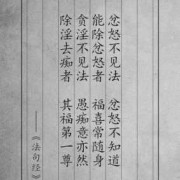 忿怒不見法　忿怒不知道
能除忿怒者　福喜常隨身
貪淫不見法　愚痴意亦然
除淫去痴者　其福第一尊
——《法句經》